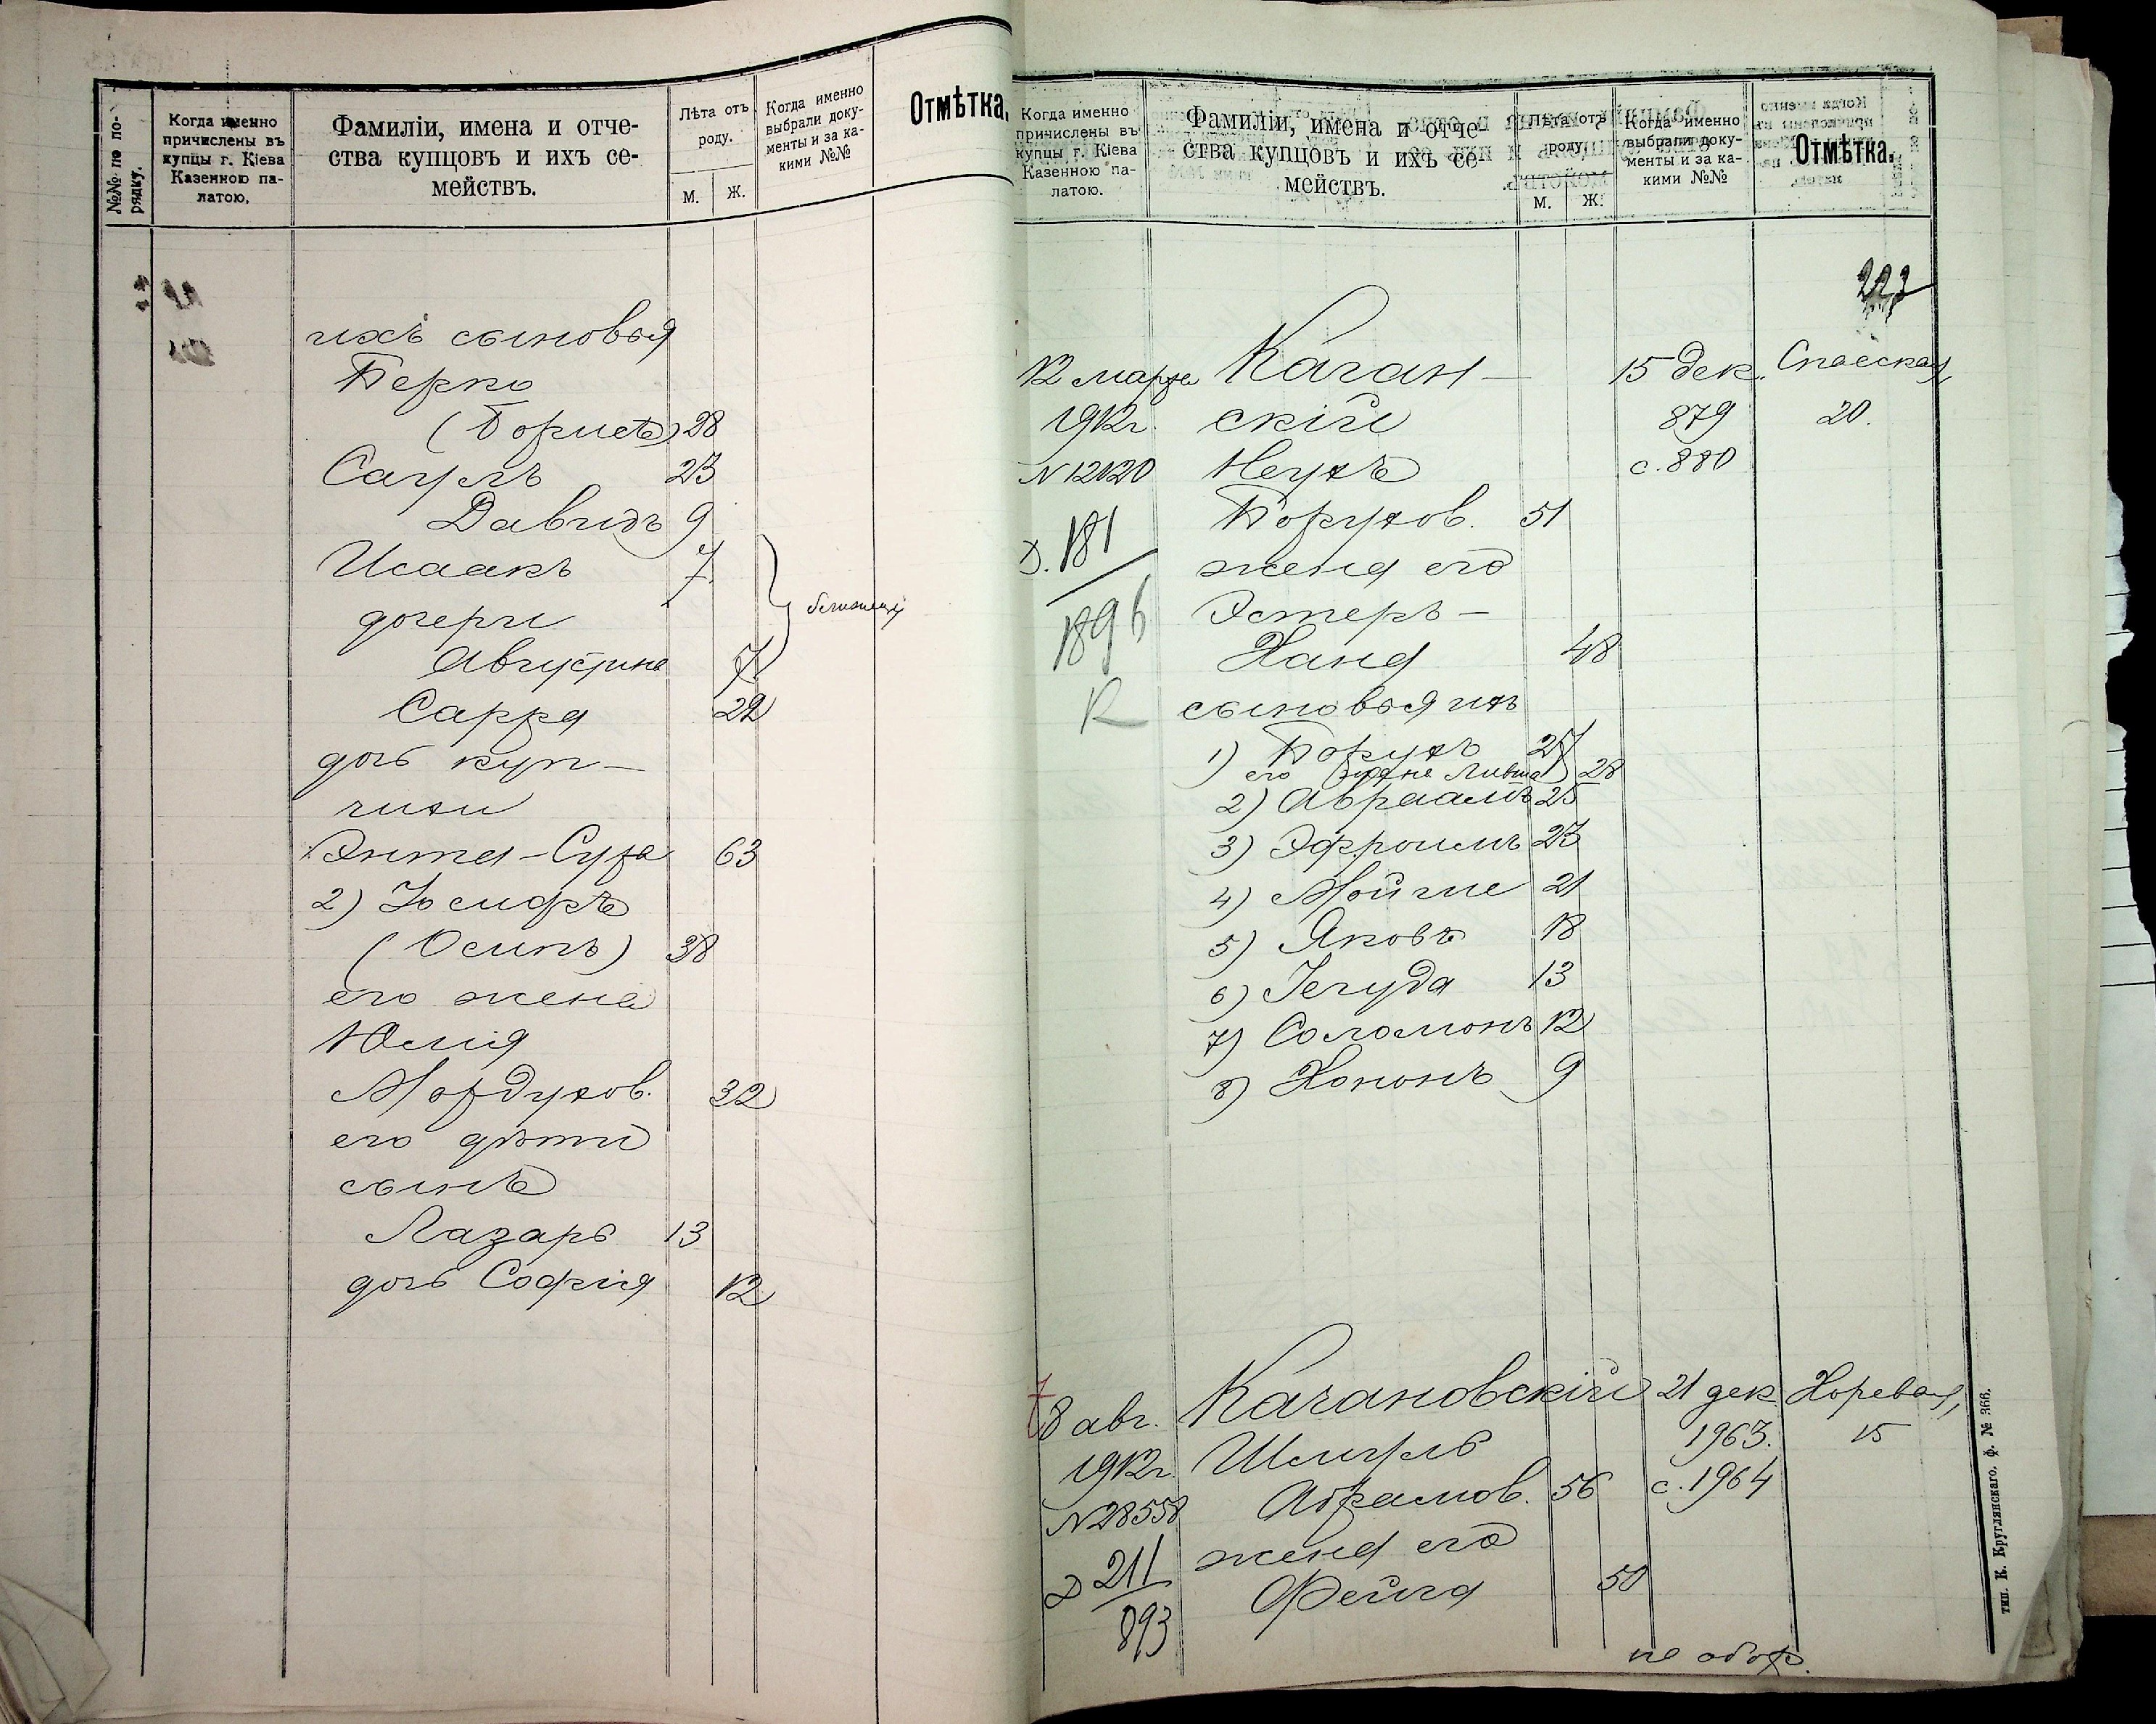 №№ по по-
рядку.
Когда именно
причислены въ
купцы г. Кіева
Казенною па-
латою.
Фамиліи, имена и отче-
ства купцовъ и ихъ се-
мействъ.
Лѣта отъ
роду.
М.
Ж.
Когда именно
выбрали доку-
менты и за ка-
кими №№
Отмѣтка.
ихъ сыновья
Берко
(Борисъ) 28
Саулъ 23
Давидъ 9
Исаакъ 7
дочери
Августина 7
близнецы
Сарра 22
дочь куп-
чихи
Энта-Сура 63
2) Іосифъ
(Осипъ) 38
его жена
Юлія
Мордухов. 32
его дѣти
сынъ
Лазарь 13
дочь Софія 12
Когда именно
причислены въ
купцы г. Кіева
Казенною па-
латою.
Фамиліи, имена и отче-
ства купцовъ и ихъ се-
мействъ.
Лѣта отъ
роду.
М.
Ж.
Когда именно
выбрали доку-
менты и за ка-
кими №№
Отмѣтка.
223
12 марта Каган- 15 дек. Спасская,
1912г. скій 879 20.
N 12120 Нехъ с. 880
Борухов. 51
Д. 181
жена его
1896 Эстеръ-
Хана 48
К сыновья ихъ
1) Борухъ 27
его жена Ливша 28
2) Авраамъ 25
3) Эфроимъ 23
4) Мойше 21
5) Яковъ 18
6) Іегуда 13
7) Соломонъ 12
8) Хононъ 9
8 авг. Кагановскій 21 дек. Хоревая,
1912г. Шмуль 1963. 15
N 28558 Абрамов. 56 с. 1964
Д 211 жена его
893 Фейга 50
тип. К. Круглянскаго. ф. № 366.